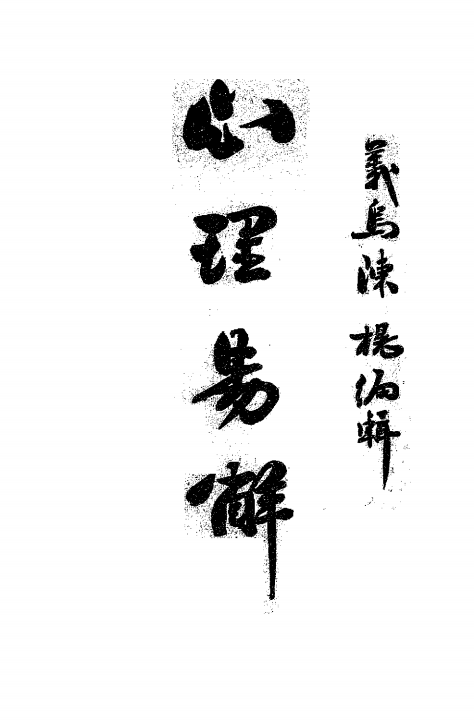 義烏陳榥編輯
心理易解